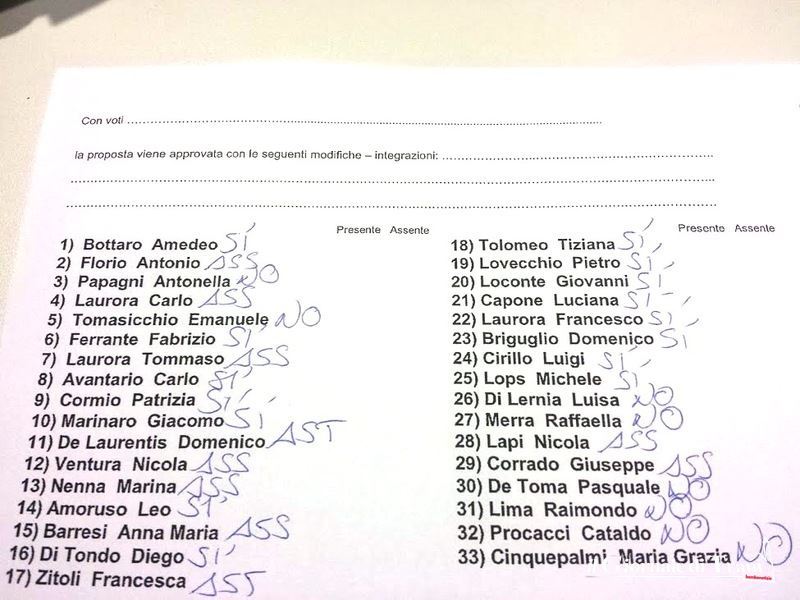 Con voti ........................................
la proposta viene approvata con le seguenti modifiche – integrazioni: ........................................
........................................
........................................
Presente Assente
1) Bottaro Amedeo SÌ
2) Florio Antonio ASS
3) Papagni Antonella NO
4) Laurora Carlo ASS
5) Tomasicchio Emanuele NO
6) Ferrante Fabrizio SÌ
7) Laurora Tommaso ASS
8) Avantario Carlo SÌ
9) Cormio Patrizia SÌ
10) Marinaro Giacomo SÌ
11) De Laurentis Domenico AST
12) Ventura Nicola ASS
13) Nenna Marina ASS
14) Amoruso Leo SÌ
15) Barresi Anna Maria ASS
16) Di Tondo Diego SÌ
17) Zitoli Francesca AST
Presente Assente
18) Tolomeo Tiziana SÌ
19) Lovecchio Pietro SÌ
20) Loconte Giovanni SÌ
21) Capone Luciana SÌ
22) Laurora Francesco SÌ
23) Briguglio Domenico SÌ
24) Cirillo Luigi SÌ
25) Lops Michele SÌ
26) Di Lernia Luisa NO
27) Merra Raffaella NO
28) Lapi Nicola ASS
29) Corrado Giuseppe ASS
30) De Toma Pasquale NO
31) Lima Raimondo NO
32) Procacci Cataldo NO
33) Cinquepalmi Maria Grazia NO